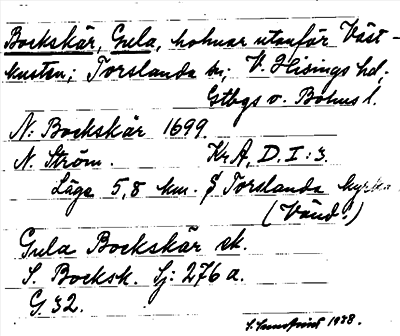 Bockskär, Gula, holmar utanför Väst-
kusten; Torslanda sn; V. Hisings hd;
Gtbgs o. Bohus l.
N: Bockskär 1699.
N. Ström. Kr A, D. I: 3.
Läge 5,8 km. S Torslanda kyrka
(Vänd!)
Gula Bockskär ek.
S. Bocksk. Sj: 276 a.
G. 32.
1938.